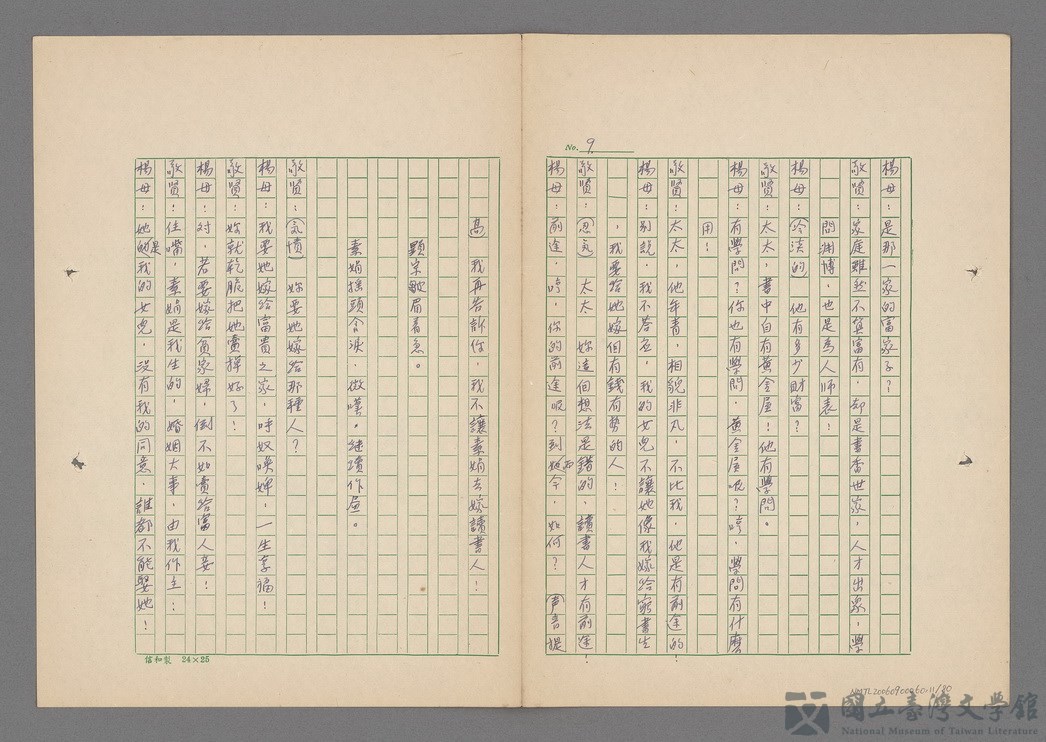 No. 9
楊母：是那一家的富家子？
敬賢：家庭雖然不算富有，却是書香世家，人才出衆，學
問渊博，也是為人師表！
楊母：(冷淡的) 他有多少財富？
敬賢：太太，書中自有黃金屋！他有學問。
楊母：有學問？你也有學問，黃金屋呢？哼，學問有什麼
用！
敬賢：太太，他年青，相貌非凡，不比我，他是有前途的！
楊母：別說，我不答應，我的女兒不讓她像我嫁給窮書生
，我要給她嫁個有錢有勢的人！
敬賢：(忍氣) 太太 妳這個想法是錯的，讀書人才有前途！
楊母：前途，哼，你的前途呢？到而今，如何？ (声音提
高) 我再告訴你，我不讓素娟去嫁讀書人！
顯宗皺眉着急。
素娟搖頭含淚，微嘆。继續作畫。
敬賢：(氣憤) 妳要她嫁給那種人？
楊母：我要她嫁給富貴之家，呼奴喚婢，一生享福！
敬賢：妳就乾脆把她賣掉好了！
楊母：对，若要嫁給貧家婦，倒不如賣給富人妾！
敬賢：住嘴，素娟是我生的，婚姻大事，由我作主！
楊母：她是我的女兒，没有我的同意，誰都不能娶她！
信和製 24×25
NMTL20060900060-11/80
國立臺灣文學館
National Museum of Taiwan Literature